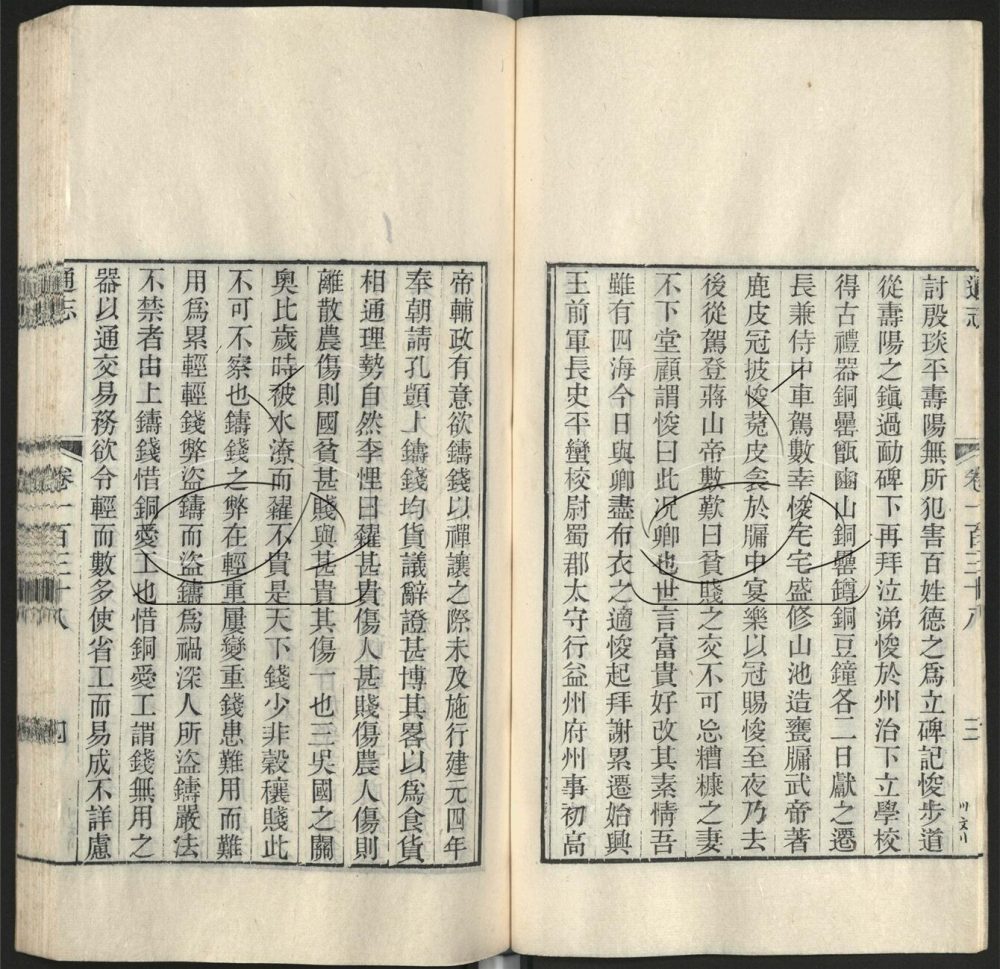 通志
卷一百三十八
三
討殷琰平壽陽無所犯害百姓德之爲立碑記悛步道
從壽陽之鎮過勔碑下再拜泣涕悛於州治下立學校
得古禮器銅罍甑豳山銅罍鐏銅豆鐘各二口獻之遷
長兼侍中車駕數幸悛宅宅盛修山池造甕牖武帝著
鹿皮冠披悛菟皮衾於牖中宴樂以冠賜悛至夜乃去
後從駕登蔣山帝數歎曰貧賤之交不可忘糟糠之妻
不下堂顧謂悛曰此况卿也世言富貴好改其素情吾
雖有四海今日與卿盡布衣之適悛起拜謝累遷始興
王前軍長史平蠻校尉蜀郡太守行益州府州事初高
帝輔政有意欲鑄錢以禪讓之際未及施行建元四年
奉朝請孔顗上鑄錢均貨議辭證甚博其畧以爲食貨
相通理勢自然李悝曰糴甚貴傷人甚賤傷農人傷則
離散農傷則國貧甚賤與甚貴其傷一也三吳國之關
奧比歲時被水潦而糴不貴是天下錢少非穀穰賤此
不可不察也鑄錢之弊在輕重屢變重錢患難用而難
用爲累輕輕錢弊盜鑄而盜鑄爲禍深人所盜鑄嚴法
不禁者由上鑄錢惜銅愛工也惜銅愛工謂錢無用之
器以通交易務欲令輕而數多使省工而易成不詳慮
通志
卷一百三十八